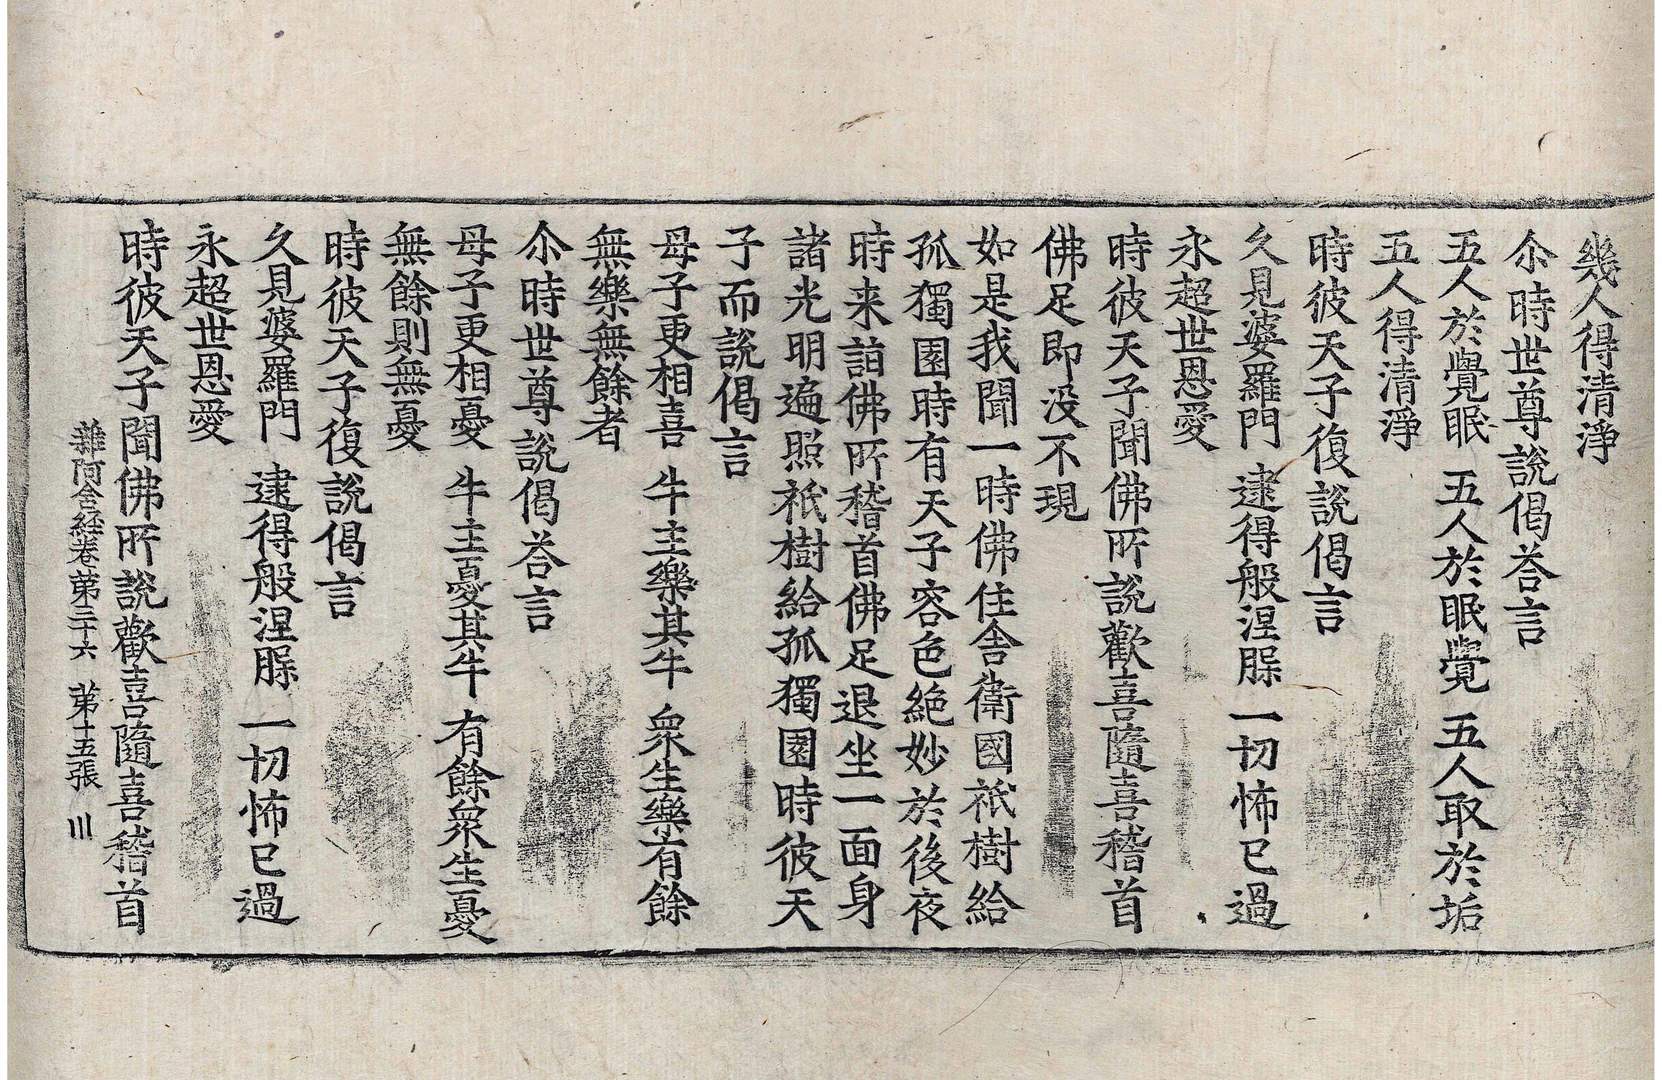 幾人得清淨
尒時世尊說偈荅言
五人於覺眠　五人於眠覺　五人取於垢
五人得清淨
時彼天子復說偈言
久見婆羅門　逮得般涅脲　一切怖已過
永超世恩愛
時彼天子聞佛所說歡喜隨喜稽首
佛足即没不現
如是我聞一時佛住舍衛國祇樹給
孤獨園時有天子容色絶妙於後夜
時来詣佛所稽首佛足退坐一面身
諸光明遍照祇樹給孤獨園時彼天
子而說偈言
母子更相喜　牛主樂其牛　衆生樂有餘
無樂無餘者
尒時世尊說偈荅言
母子更相憂　牛主憂其牛　有餘衆生憂
無餘則無憂
時彼天子復說偈言
久見婆羅門　逮得般涅脲　一切怖已過
永超世恩愛
時彼天子聞佛所說歡喜隨喜稽首
雜阿含経卷苐三十六　苐十五張　川